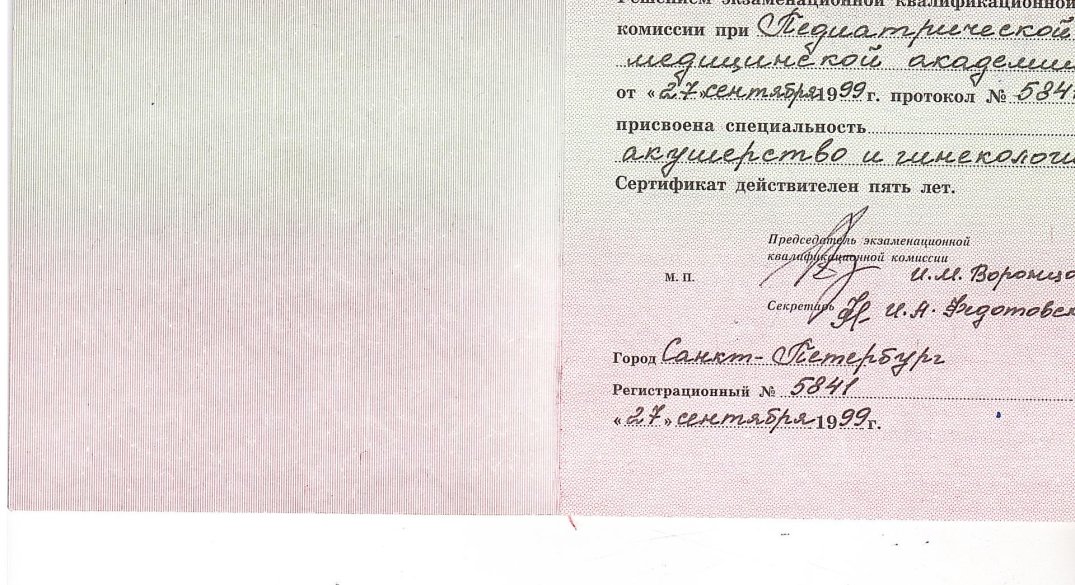 Решением экзаменационной квалификационной
комиссии при Педиатрической
медицинской академии
от «27» сентября 1999 г. протокол № 5841
присвоена специальность
акушерство и гинекологи
Сертификат действителен пять лет.
Председатель экзаменационной
квалификационной комиссии
М. П. И.М. Воронцо
Секретарь И.А. Федотовск
Город Санкт-Петербург
Регистрационный № 5841
«27» сентября 1999 г.